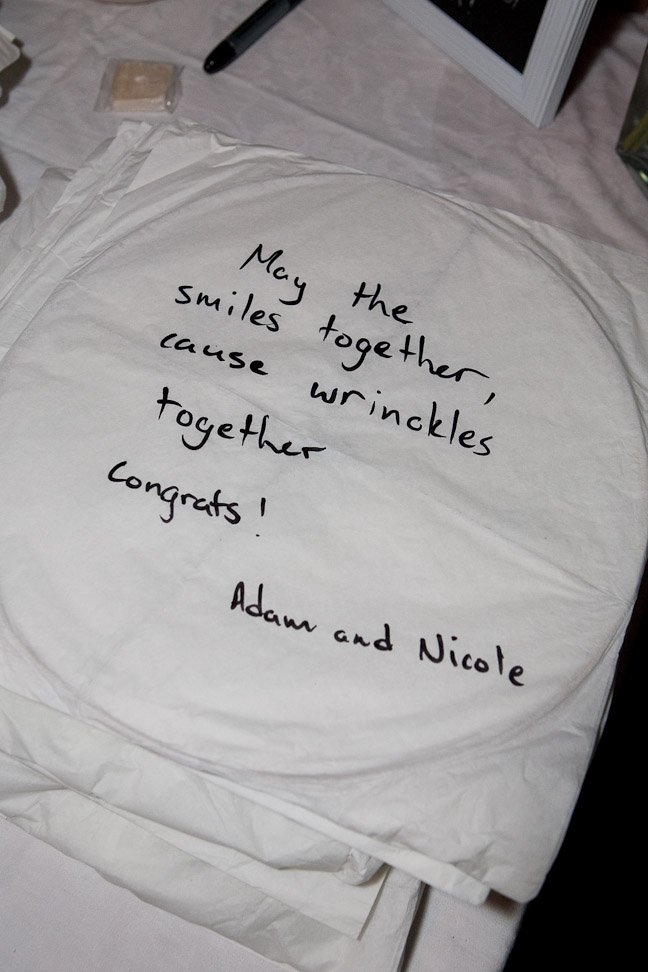 May the
smiles together,
cause wrinckles
together
congrats!
Adam and Nicole